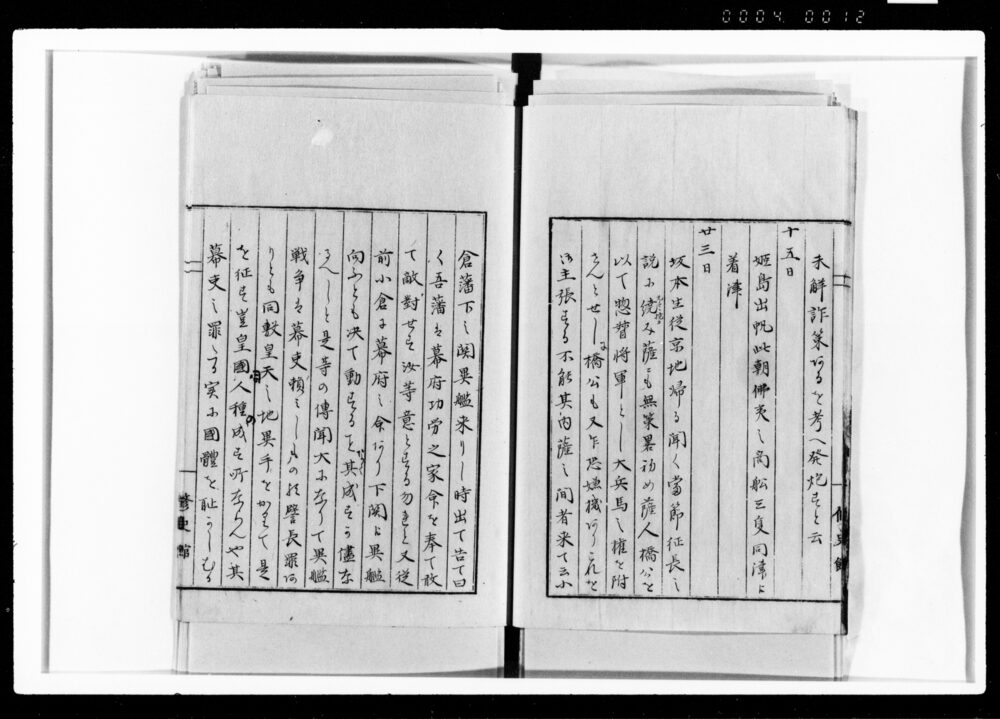 0004 0012
未解詐策あるを考へ發炮せすと云
十五日
姫島出帆此朝佛夷之商舩三隻同津ゟ
着津
廿三日
坂本生従京地帰る聞く當節征長之
説に続み薩ニも無策畧初め薩人橋公を
以て惣督将軍とし大兵馬之権を附
せんとせしに橋公も又乍恐嫌機あり之を
主張する不能其内薩之間者来て云小
倉藩下之関異艦来りし時出て告て曰
く吾藩は幕府功労之家命を奉て敢
て敵對せす汝等意とする勿れと又従
前小倉に幕府之命あり下関に異艦
向ふとも决て動する其成すの儘な
るへしと是等の傳聞大になりて異艦
戦争は幕吏頼ミしもの欤譬長罪あ
りとも同敷皇天之地異手をかりて是
を征す豈皇國人種の成す所ならんや其
幕吏之罪たる実に國體を耻かしむる
修史館
修史館